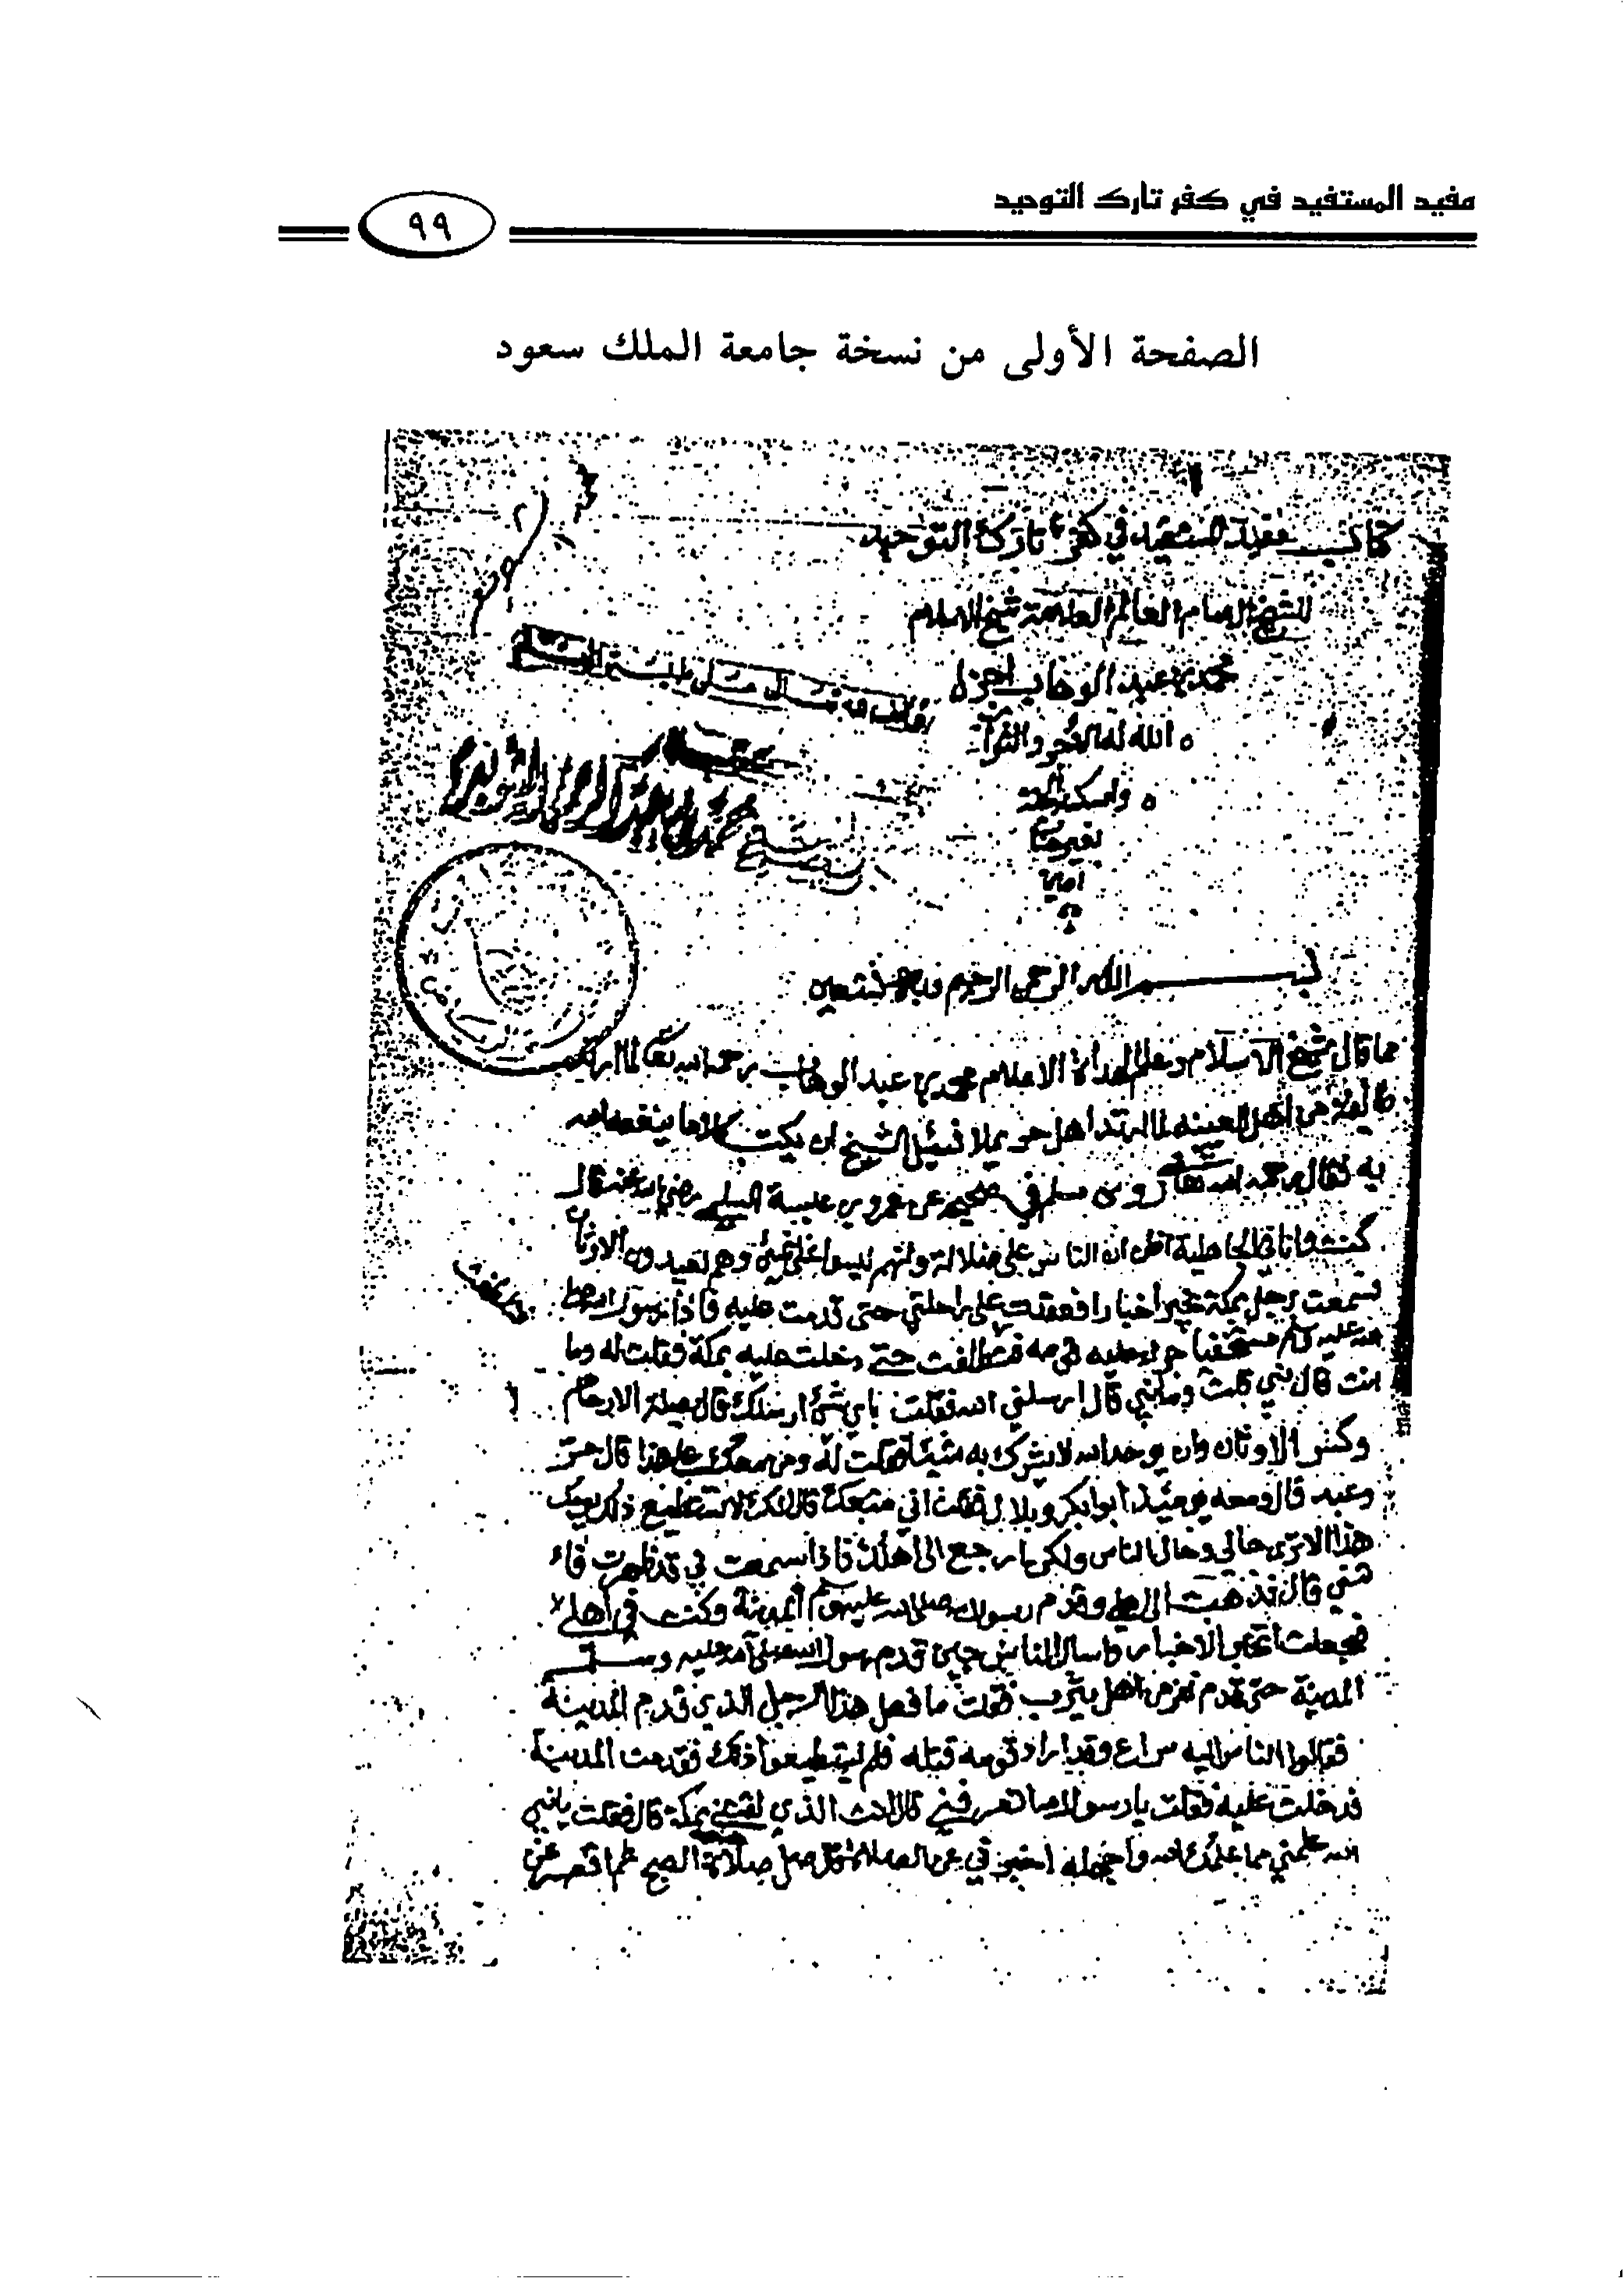 مفيد المستفيد في كفر تارك التوحيد
٩٩
الصفحة الأولى من نسخة جامعة الملك سعود
كتاب مفيد المستفيد في كفر تارك التوحيد
للشيخ الامام العالم العلامة شيخ الاسلام
محمد بن عبد الوهاب اجزل
الله له الاجر والثواب
امين
بسم الله الرحمن الرحيم وبه نستعين
مما قال شيخ الاسلام وعلم الهداة الاعلام محمد بن عبد الوهاب رحمه الله تعالى لما ارتاب
طائفة من اهل العيينة لما ارتد اهل حريملا فسئل الشيخ ان يكتب كلاما ينفعه الله
به فقال رحمه الله تعالى روى مسلم في صحيحه عن عمرو بن عبسة السلمي رضي الله عنه قال
كنت وانا في الجاهلية اظن ان الناس على ضلالة وانهم ليسوا على شيء وهم يعبدون الاوثان
فسمعت برجل بمكة يخبر اخبارا فقعدت على راحلتي حتى قدمت عليه فاذا رسول الله صلى
الله عليه وسلم مستخفيا جراء عليه قومه فتلطفت حتى دخلت عليه بمكة فقلت له وما
انت قال نبي قلت وما نبي قال ارسلني الله فقلت باي شيء ارسلك قال بصلة الارحام
وكسر الاوثان وان يوحد الله لا يشرك به شيئا فقلت له ومن معك على هذا قال حر
وعبد قال ومعه يومئذ ابوا بكر وبلال فقلت اني متبعك قال انك لا تستطيع ذلك يومك
هذا الا ترى حالي وحال الناس ولكن ارجع الى اهلك فاذا سمعت بي قد ظهرت فاء
تني قال فذهبت الى اهلي وقدم رسول الله صلى الله عليه وسلم المدينة وكنت في اهلي
فجعلت اتخبر الاخبار واسال الناس حين قدم رسول الله صلى الله عليه وسلم
المدينة حتى قدم نفر من اهل يثرب فقلت ما فعل هذا الرجل الذي قدم المدينة
فقالوا الناس اليه سراع وقد اراد قومه قتله فلم يستطيعوا ذلك فقدمت المدينة
فدخلت عليه فقلت يا رسول الله اتعرفني قال انت الذي لقيتني بمكة قال فقلت يا نبي
الله علمني مما علمك الله واجهله اخبرني عن الصلاة قال صل صلاة الصبح ثم اقصر عن